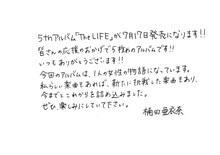 5thアルバム「The LIFE」が7月17日発売になります!!
皆さんの応援のおかげで5枚めのアルバムです!!
いつもありがとうございます!
今回のアルバムは、1人の女性が物語になっています。
私らしい楽曲もあれば、新たに挑戦した楽曲もあり、
今までとこだわりを詰め込みました。
ぜひ、楽しみにしていて下さい。
楠田亜衣奈